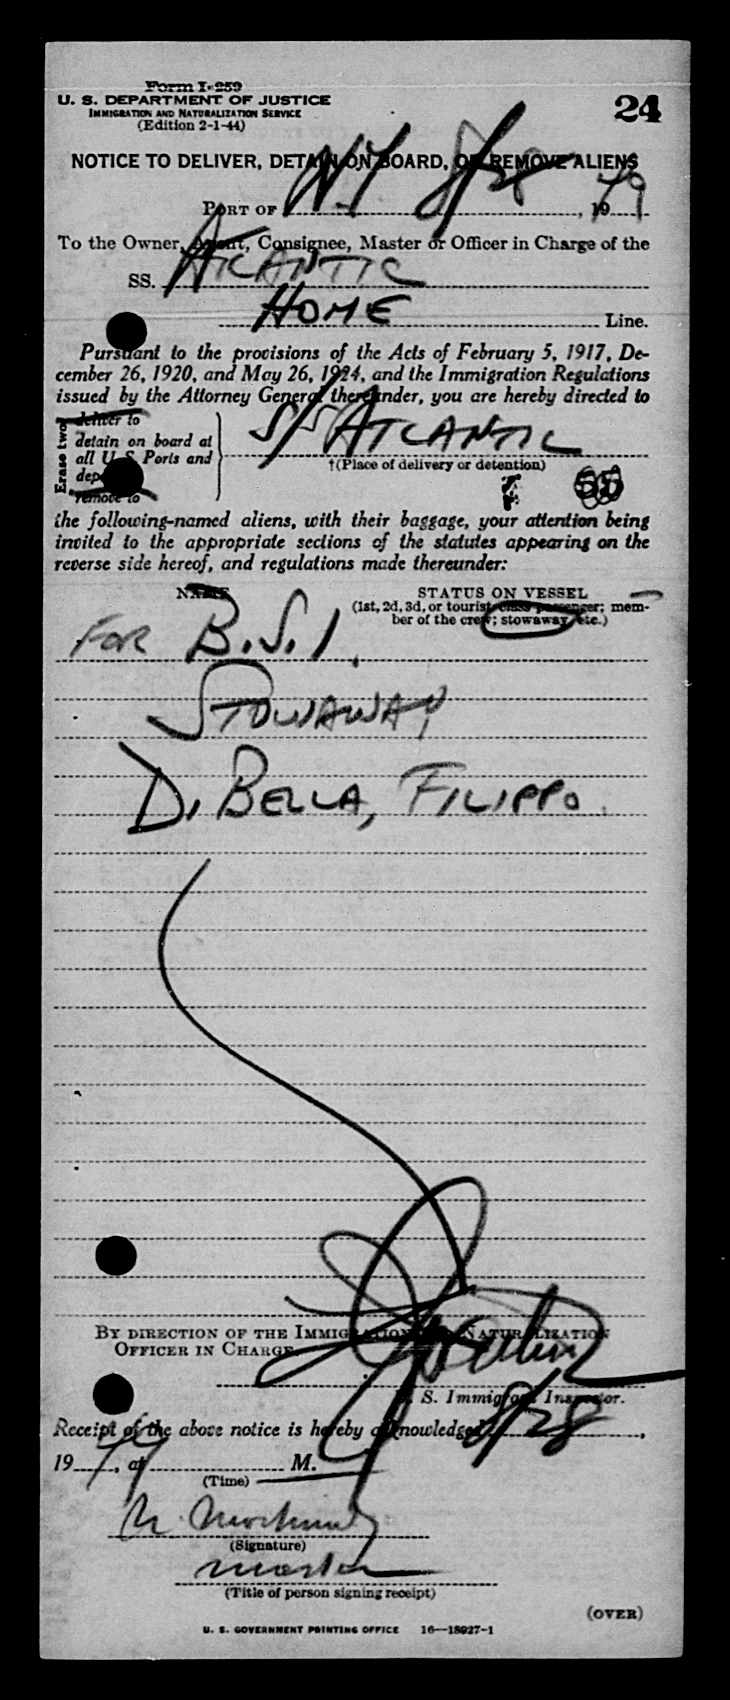 Form I-259
U. S. DEPARTMENT OF JUSTICE
IMMIGRATION AND NATURALIZATION SERVICE
(Edition 2-1-44)
24
NOTICE TO DELIVER, DETAIN ON BOARD, OR REMOVE ALIENS
PORT OF NY 8/28, 1949
To the Owner, Agent, Consignee, Master or Officer in Charge of the
SS. ATLANTIC
HOME Line.
Pursuant to the provisions of the Acts of February 5, 1917, De-
cember 26, 1920, and May 26, 1924, and the Immigration Regulations
issued by the Attorney General thereunder, you are hereby directed to
Erase two
deliver to
detain on board at
all U S Ports and
remove to
S/S ATLANTIC
†(Place of delivery or detention)
the following-named aliens, with their baggage, your attention being
invited to the appropriate sections of the statutes appearing on the
reverse side hereof, and regulations made thereunder:
NAME
STATUS ON VESSEL
(1st, 2d, 3d, or tourist class passenger; mem-
ber of the crew; stowaway, etc.)
FOR B.S.I.
STOWAWAY
Di BELLA, FILIPPO.
BY DIRECTION OF THE IMMIGRATION AND NATURALIZATION
OFFICER IN CHARGE
U. S. Immigrant Inspector.
Receipt of the above notice is hereby acknowledged 8/28,
1949, at M.
(Time)
(Signature)
master
(Title of person signing receipt)
(OVER)
U. S. GOVERNMENT PRINTING OFFICE 16—18927-1